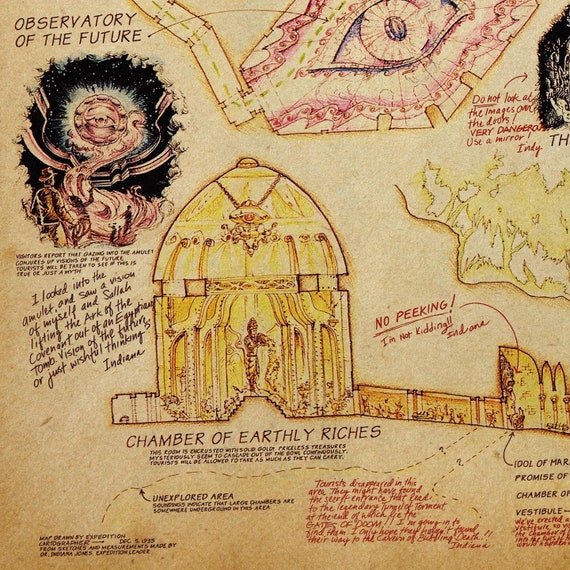 OBSERVATORY
OF THE FUTURE
Do not look at
the images over
the doors!
VERY DANGEROUS
Use a mirror!
Indy.
TH
VISITORS REPORT THAT GAZING INTO THE AMULET
CONJURES UP VISIONS OF THE FUTURE.
TOURISTS WILL BE TAKEN TO SEE IF THIS IS
TRUE OR JUST A MYTH
I looked into the
amulet, and saw a vision
of myself and Sallah
lifting the Ark of the
Covenant out of an Egyptian
Tomb. Vision of the future,
or just wishful thinking?
Indiana
NO PEEKING!
I'm Not Kidding!!
Indiana
CHAMBER OF EARTHLY RICHES
THIS ROOM IS ENCRUSTED WITH SOLID GOLD! PRICELESS TREASURES
MYSTERIOUSLY SEEM TO CASCADE OUT OF THE BOWL CONTINUOUSLY.
TOURISTS WILL BE ALLOWED TO TAKE AS MUCH AS THEY CAN CARRY.
IDOL OF MARA
PROMISE OF
CHAMBER OF
VESTIBULE
we've erected a
vestibule, so
the Chamber of
UNEXPLORED AREA
SOUNDINGS INDICATE THAT LARGE CHAMBERS ARE
SOMEWHERE UNDERGROUND IN THIS AREA
? ?
Tourists disappeared in this
area. They might have found
the secret entrance that leads
to the legendary Jungle of Torment,
at the end of which lie the
GATES OF DOOM!! I'm going in to
find them. I only hope they haven't found
their way to the Cavern of Bubbling Death!!
Indiana
MAP DRAWN BY EXPEDITION
CARTOGRAPHER DEC. 5, 1935
FROM SKETCHES AND MEASUREMENTS MADE BY
DR. INDIANA JONES, EXPEDITION LEADER